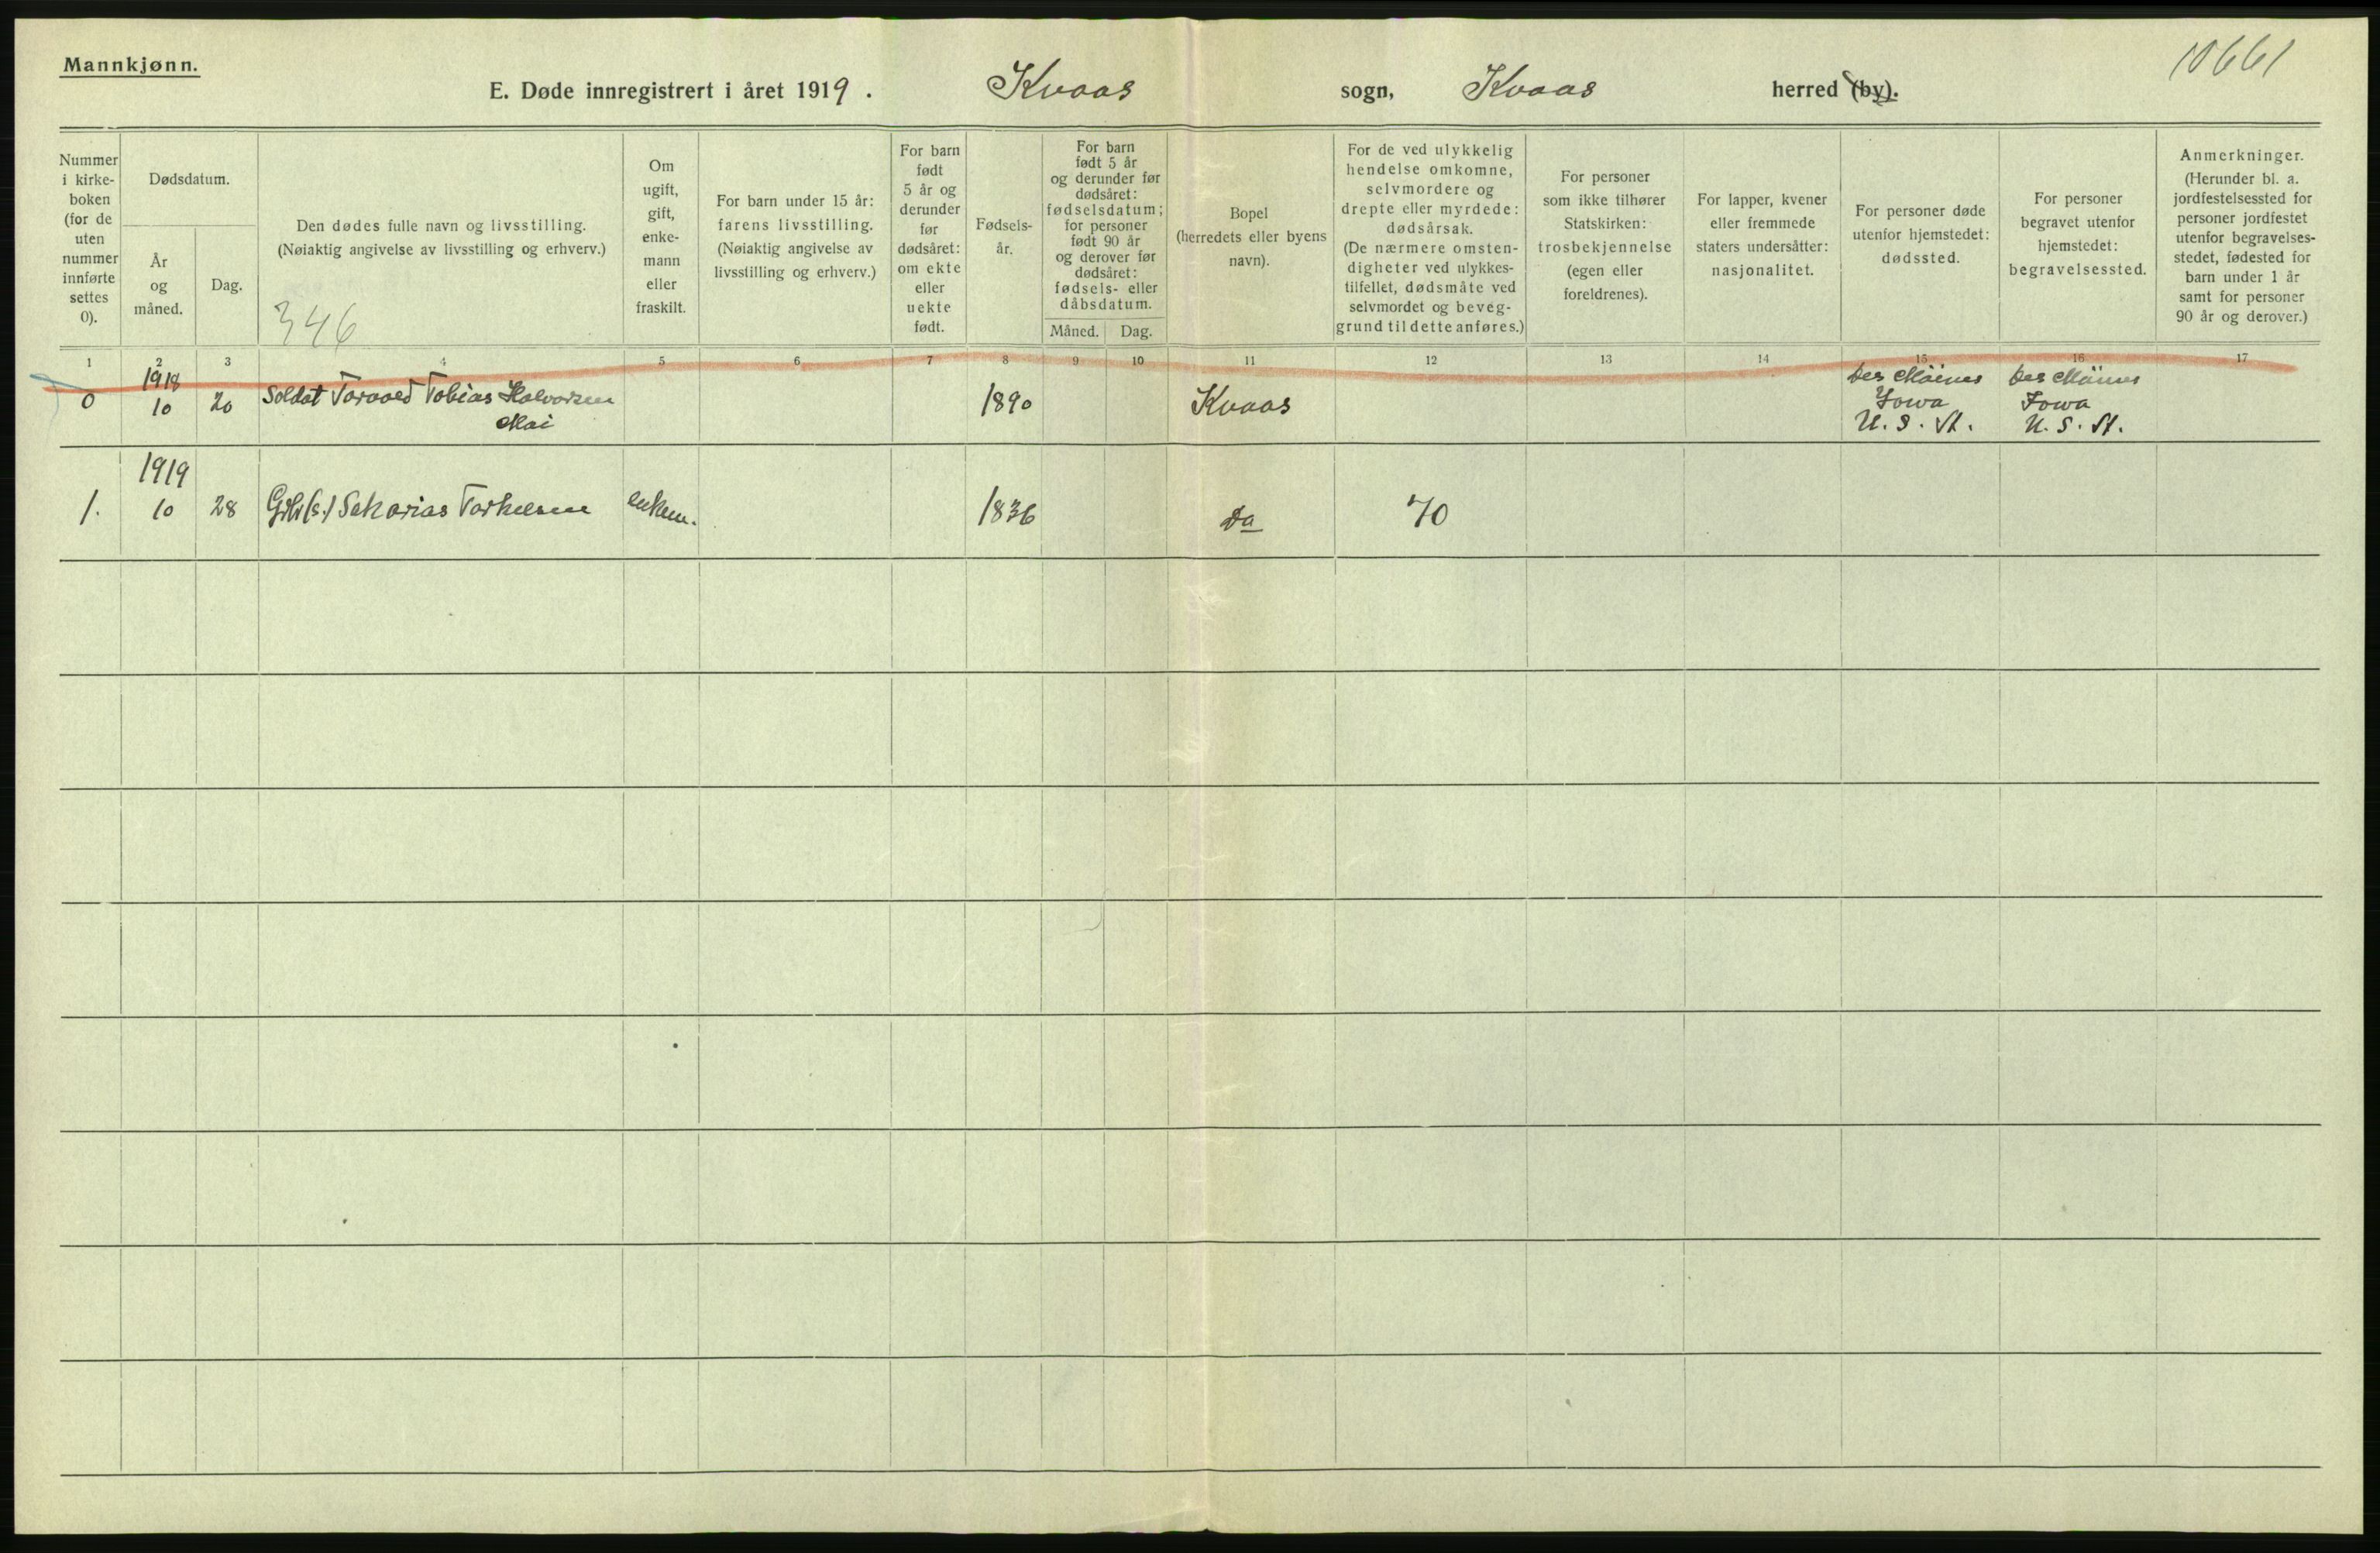 Mannkjønn.
10661
E. Døde innregistrert i året 1919. Kvaas sogn, Kvaas herred (by).
Nummer
i kirke-
boken
(for de
uten
nummer
innførte
settes
0).
Dødsdatum.
År
og
måned.
Dag.
Den dødes fulle navn og livsstilling.
(Nøiaktig angivelse av livsstilling og erhverv.)
346
Om
ugift,
gift,
enke-
mann
eller
fraskilt.
For barn under 15 år:
farens livsstilling.
(Nøiaktig angivelse av
livsstilling og erhverv.)
For barn
født
5 år og
derunder
før
dødsåret:
om ekte
eller
uekte
født.
Fødsels-
år.
For barn
født 5 år
og derunder før
dødsåret:
fødselsdatum;
for personer
født 90 år
og derover før
dødsåret:
fødsels- eller
dåbsdatum.
Måned. Dag.
Bopel
(herredets eller byens
navn).
For de ved ulykkelig
hendelse omkomne,
selvmordere og
drepte eller myrdede:
dødsårsak.
(De nærmere omsten-
digheter ved ulykkes-
tilfellet, dødsmåte ved
selvmordet og beveg-
grund til dette anføres.)
For personer
som ikke tilhører
Statskirken:
trosbekjennelse
(egen eller
foreldrenes).
For lapper, kvener
eller fremmede
staters undersåtter:
nasjonalitet.
For personer døde
utenfor hjemstedet:
dødssted.
For personer
begravet utenfor
hjemstedet:
begravelsessted.
Anmerkninger.
(Herunder bl. a.
jordfestelsessted for
personer jordfestet
utenfor begravelses-
stedet, fødested for
barn under 1 år
samt for personer
90 år og derover.)
1 2 3 4 5 6 7 8 9 10 11 12 13 14 15 16 17
1918
0 10 20 Soldat Torvald Tobias Halvorsen
Moi
1890 Kvaas
Des Moines
Iowa
U. S. A.
Des Moines
Iowa
U. S. A.
1919
1. 10 28 Sakarias Torkelsen enkem. 1836 Do 70